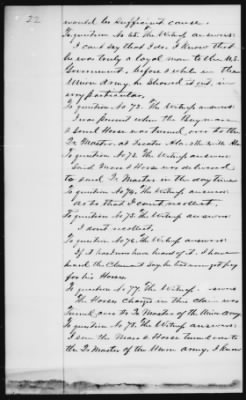 22
would be sufficient cause.
To question No 65. the Witness answers:
I can't say that I do. I know that
he was truly a loyal man to the U.S.
Government, before & while in the
Union Army, he showed it out, in
every particular.
To question No 72. The Witness answers:
I was present when the
& Sorrel Horse was turned over to the
Qr. Master, at Decatur Ala.
To question No 73. The Witness answers:
Said Mare & Horse was delivered
to said Qr. Master in the day time
To question No 74. The Witness answers:
as to that I can't recollect.
To question No 75. The Witness answers:
I don't recollect.
To question No 76. The Witness answers:
If it has been I have heard of it. I have
heard the Claimant say he has never got pay
for his Horse.
To question No 77. The Witness
The Horse charged in this claim was
turned over to Qr Master of the Union army.
To question No 78. The Witness answers:
I seen the Mare & Horse turned over to
the Qr Master of the Union army. I know